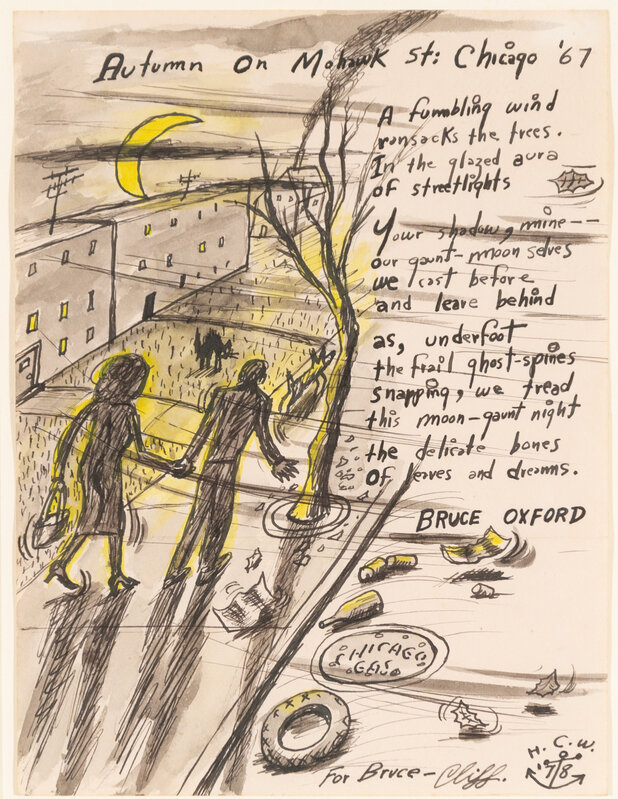 Autumn on Mohawk St: Chicago '67
A fumbling wind
ransacks the trees.
In the glazed aura
of streetlights
Your shadow, mine--
our gaunt-moon selves
we cast before
and leave behind
as, underfoot
the frail ghost-spines
snapping, we tread
this moon-gaunt night
the delicate bones
Of leaves and dreams.
BRUCE OXFORD
CHICAGO
GAS
For Bruce - Cliff.
H. C. W.
'78